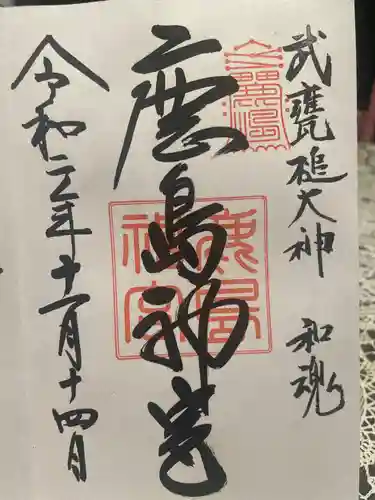 武甕槌大神 和魂
鹿島神宮
鹿島神宮
令和二年十一月十四日